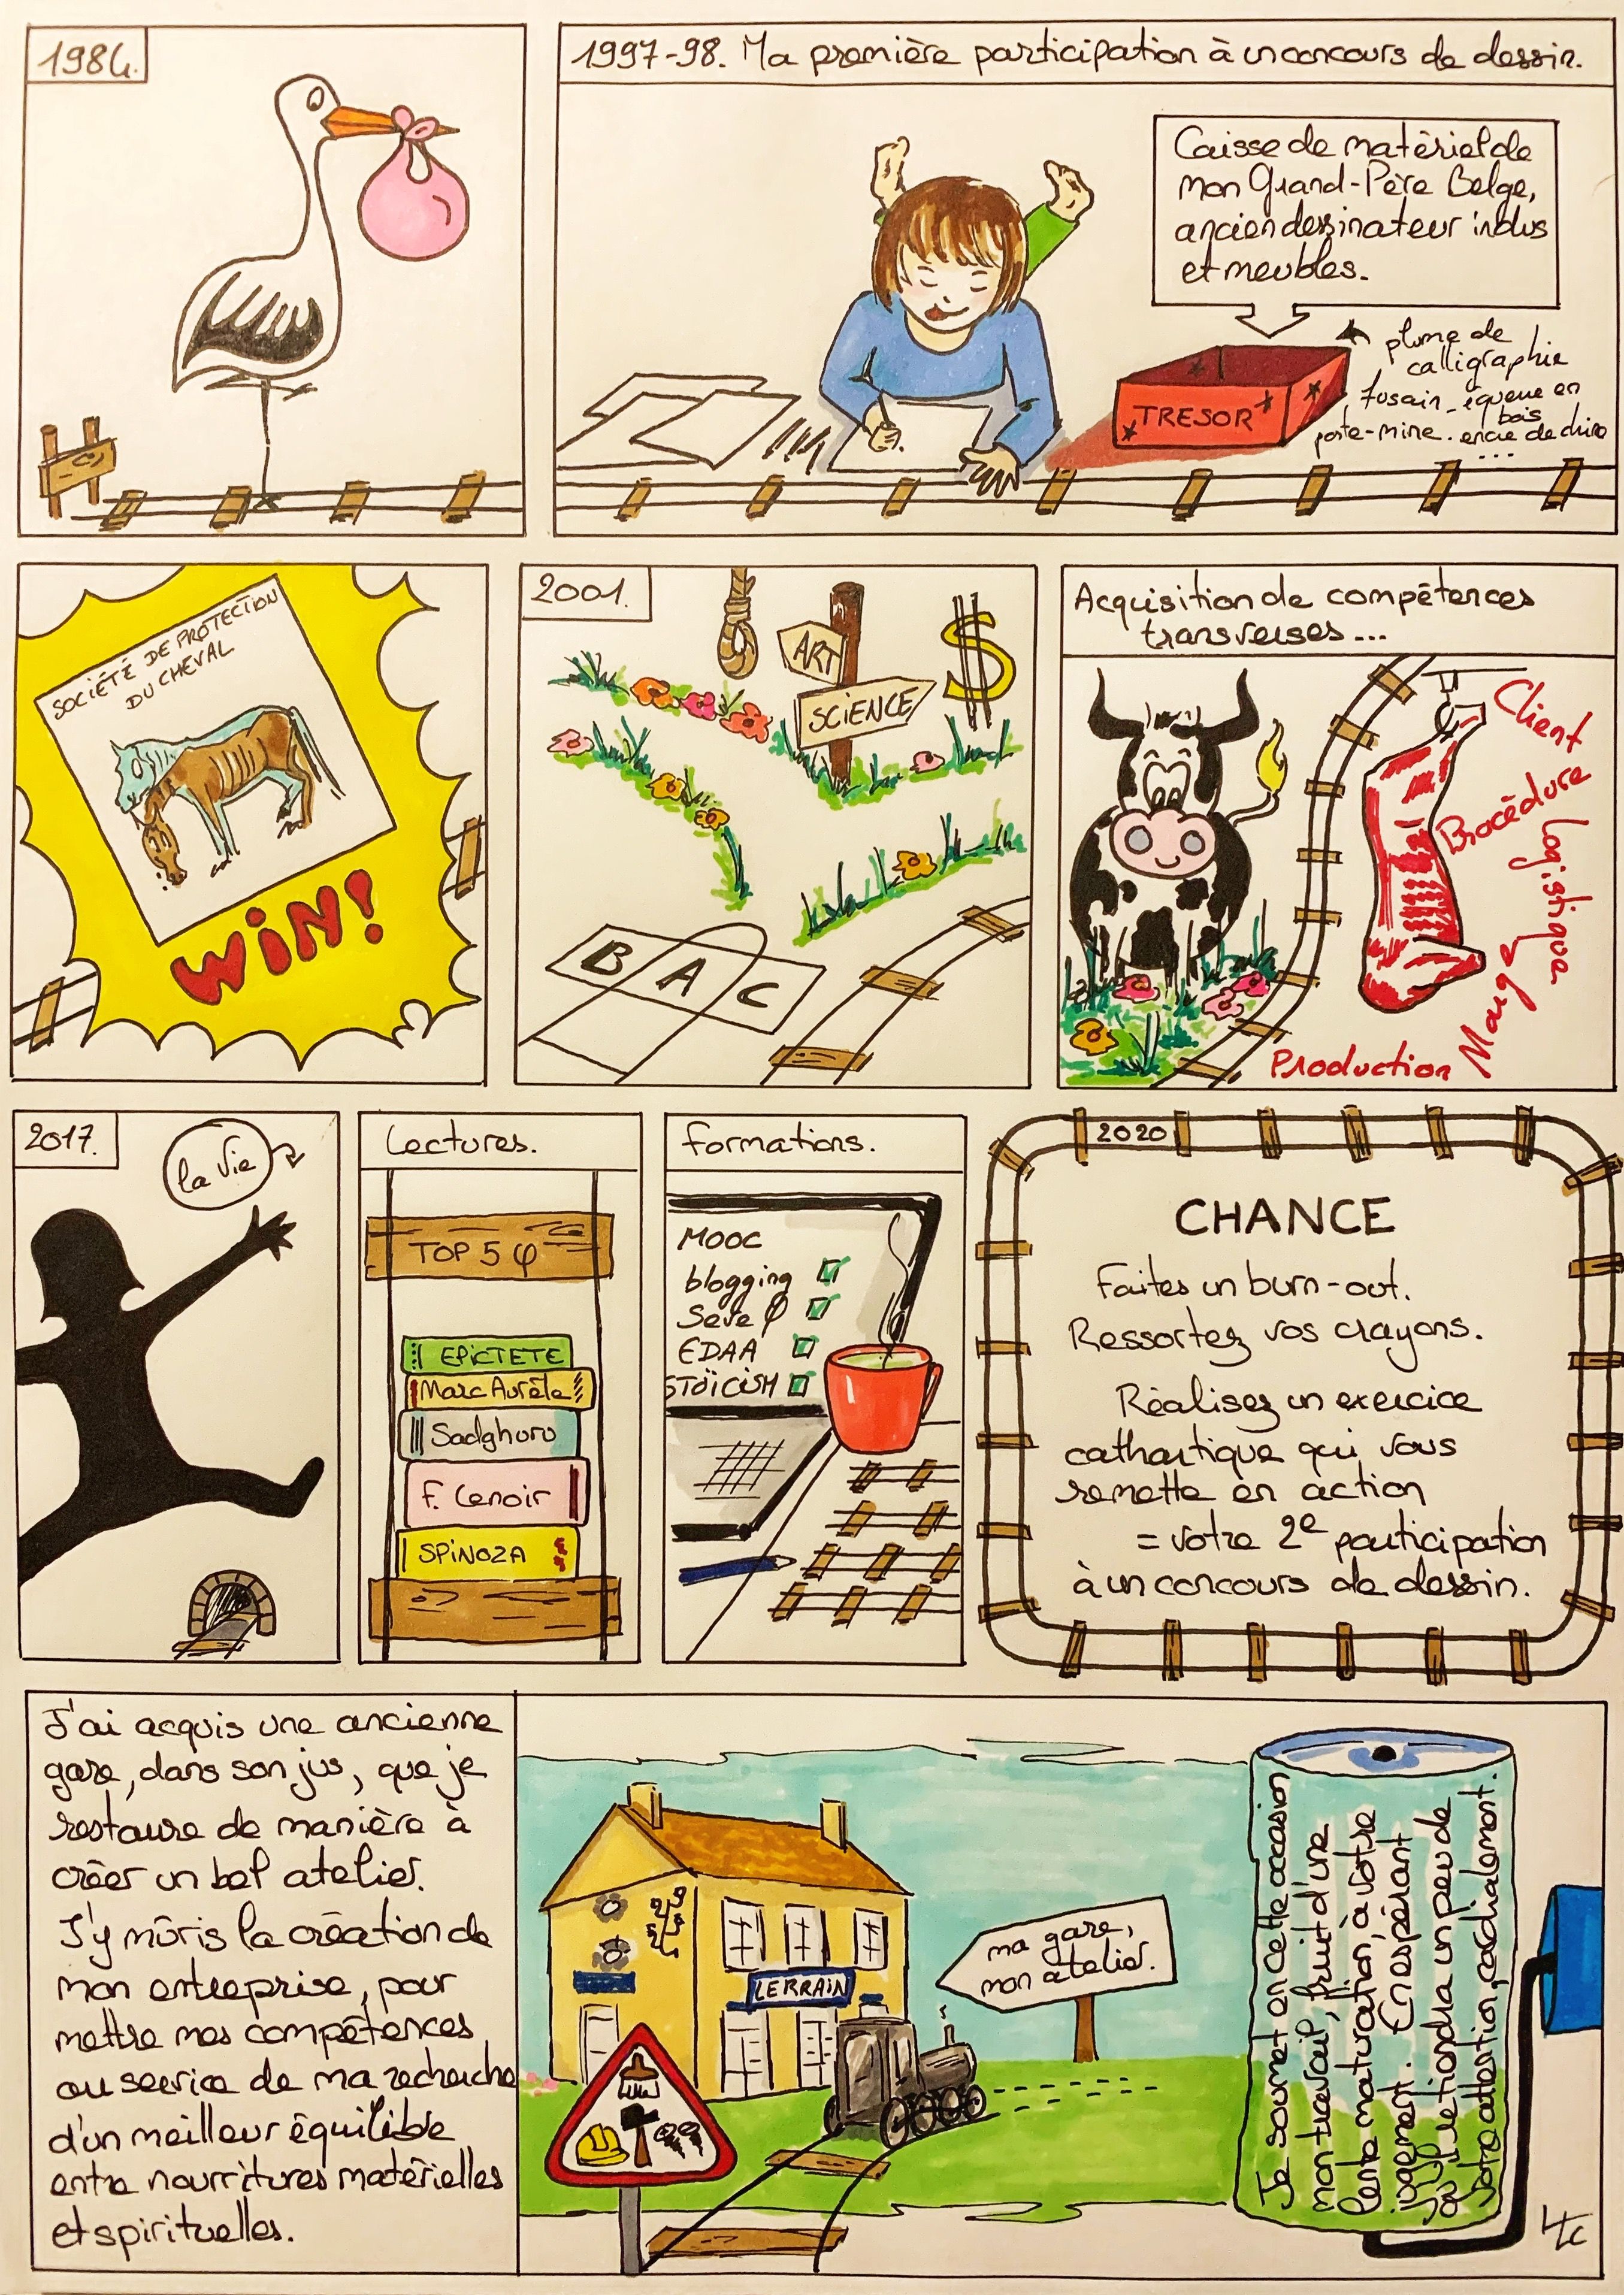 1984.
1997-98. Ma première participation à un concours de dessin.
Caisse de matériel de
mon Grand-Père Belge,
ancien dessinateur indus
et meubles.
plume de
calligraphie
fusain - équerre en
bois
porte-mine. encre de chine
...
TRESOR
SOCIÉTÉ DE PROTECTION
DU CHEVAL
WIN!
2001.
ART
SCIENCE
$
B A C
Acquisition de compétences
transverses...
Client
Procédure
Logistique
Marge
Production
2017.
la vie
Lectures.
TOP 5 φ
EPICTETE
Marc Aurèle
Sadghuru
F. Lenoir
SPINOZA
Formations.
MOOC
blogging
Seve φ
EDAA
STOÏCISM
2020
CHANCE
Faites un burn-out.
Ressortez vos crayons.
Réalisez un exercice
cathartique qui vous
remette en action
= votre 2e participation
à un concours de dessin.
J'ai acquis une ancienne
gare, dans son jus, que je
restaure de manière à
créer un bel atelier.
J'y mûris la création de
mon entreprise, pour
mettre mes compétences
au service de ma recherche
d'un meilleur équilibre
entre nourritures matérielles
et spirituelles.
LERRAIN
ma gare,
mon atelier.
Je soumet en cette occasion
mon travail, fruit d'une
lente maturation, à votre
jugement. En espérant
qu'il retiendra un peu de
votre attention, cordialement.